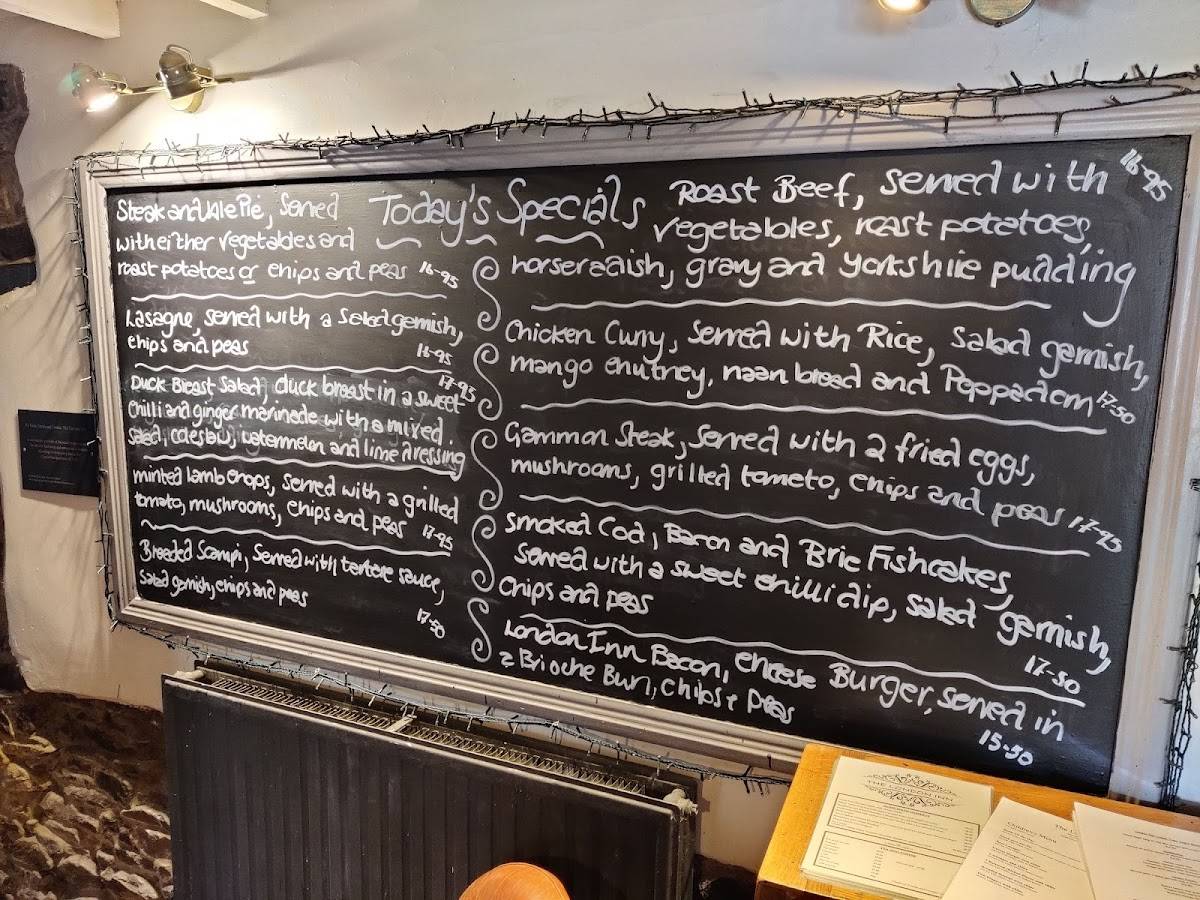 Today's Specials
Steak and Ale Pie, Served
with either vegetables and
roast potatoes or chips and peas 16-95
Lasagne, served with a Salad garnish,
chips and peas
16-95
Duck Breast Salad, duck breast in a sweet 17-95
chilli and ginger marinade with a mixed
salad, coleslaw, watermelon and lime dressing
minted lamb chops, served with a grilled
tomato, mushrooms, chips and peas 17-95
Breaded Scampi, Served with tartare sauce,
Salad garnish, chips and peas
17-50
Roast Beef, served with 16-95
vegetables, roast potatoes,
horseradish, gravy and Yorkshire pudding
Chicken Curry, served with Rice, Salad garnish,
mango chutney, naan bread and Peppadom 17-50
Gammon Steak, served with 2 fried eggs,
mushrooms, grilled tomato, chips and peas 17-95
Smoked Cod, Bacon and Brie Fishcakes,
served with a sweet chilli dip, salad garnish,
Chips and peas
17-50
London Inn Bacon, cheese Burger, served in
a Brioche Bun, chips + peas
15-50
THE LONDON INN
Children's Menu